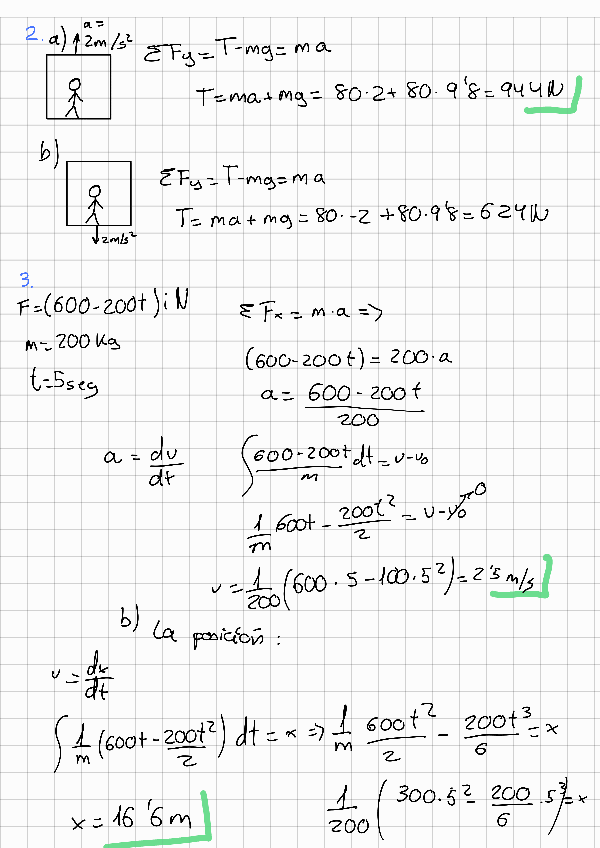 2. a) a = 2m/s²
ΣFy = T-mg = ma
T = ma + mg = 80·2 + 80·9'8 = 944N
b)
ΣFy = T-mg = ma
T = ma + mg = 80·-2 + 80·9'8 = 624N
2m/s²
3.
F = (600-200t) i N
m = 200 Kg
t = 5 seg
ΣFx = m·a =>
(600-200t) = 200·a
a = (600 - 200t)/200
a = dv/dt
∫ (600-200t)/m dt = v-v₀
1/m 600t - 200t²/2 = v-v₀ → 0
v = 1/200 (600·5 - 100·5²) = 2'5 m/s
b) La posición:
v = dx/dt
∫ 1/m (600t - 200t²/2) dt = x => 1/m 600t²/2 - 200t³/6 = x
1/200 (300·5² - 200/6 ·5³) = x
x = 16'6 m